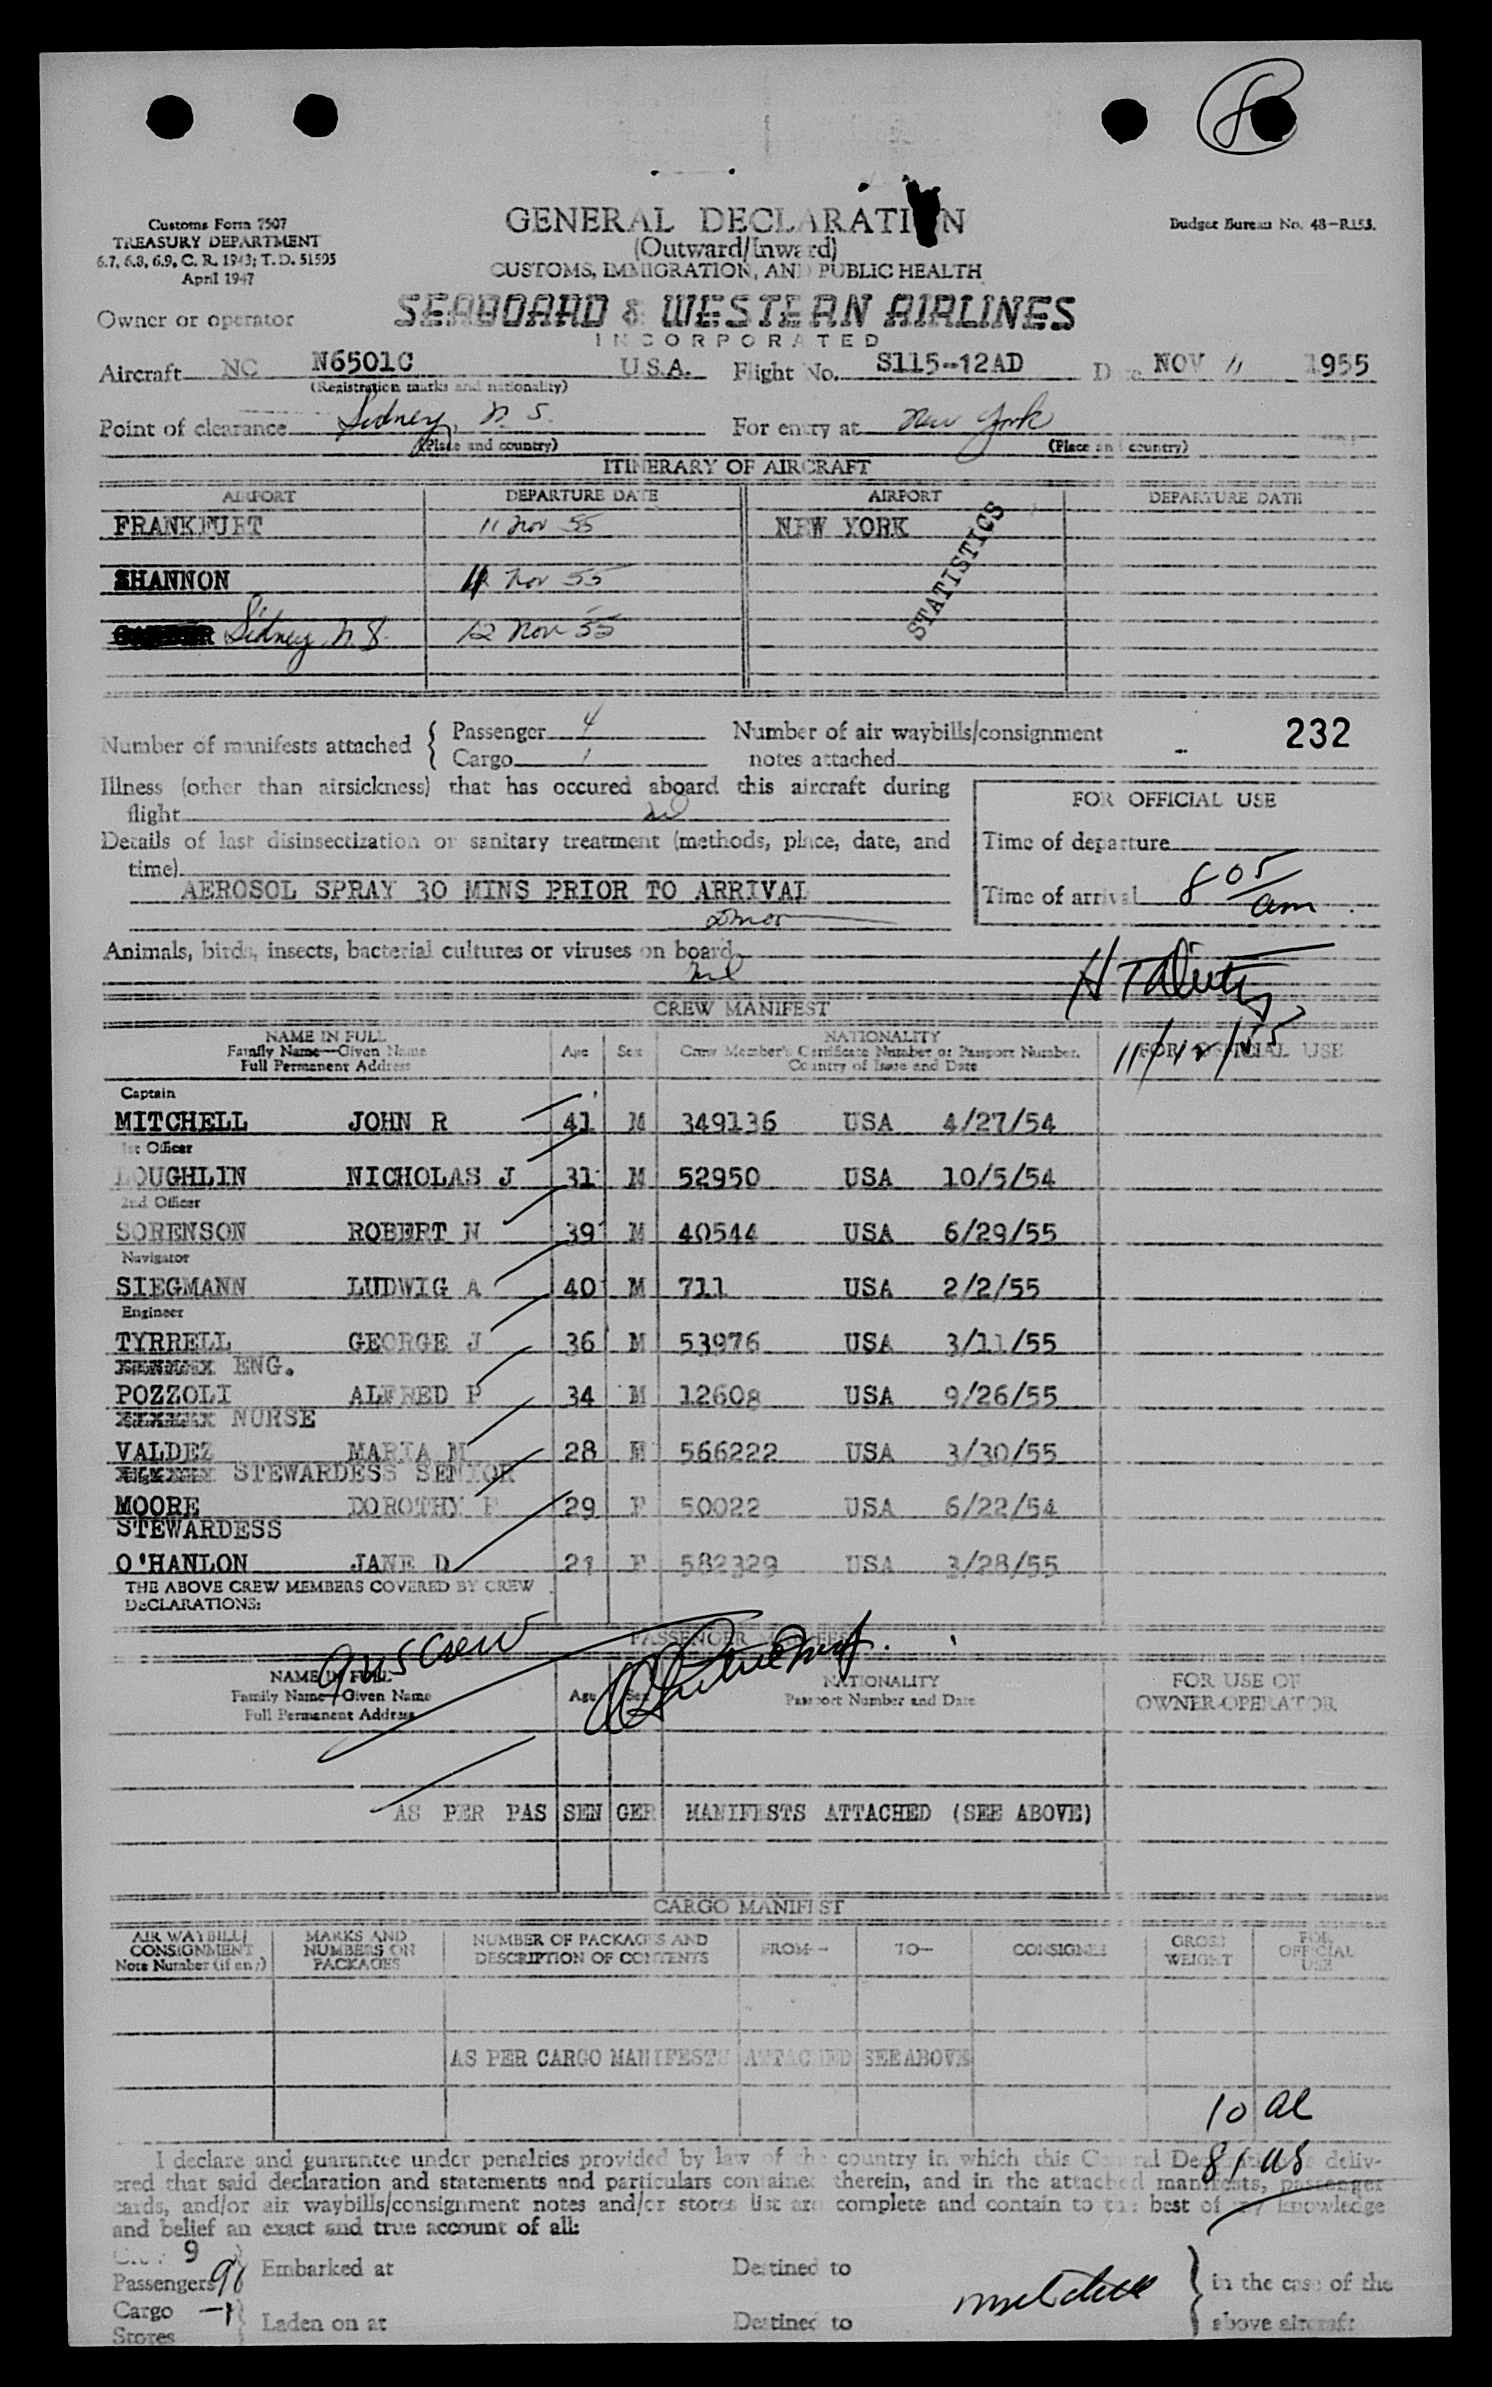 8
Customs Form 7507
TREASURY DEPARTMENT
6.7, 6.8, 6.9, C. R. 1943; T. D. 51595
April 1947
GENERAL DECLARATION
(Outward/Inward)
CUSTOMS, IMMIGRATION, AND PUBLIC HEALTH
Budget Bureau No. 48-R153.
Owner or operator SEABOARD & WESTERN AIRLINES
INCORPORATED
Aircraft NC N6501C U.S.A. Flight No. S115-12AD Date NOV 11 1955
(Registration marks and nationality)
Point of clearance Sidney, N.S. For entry at New York
(Place and country) (Place and country)
ITINERARY OF AIRCRAFT
AIRPORT DEPARTURE DATE AIRPORT DEPARTURE DATE
FRANKFURT 11 Nov 55 NEW YORK
STATISTICS
SHANNON 11 Nov 55
Sidney, N.S. 12 Nov 55
Number of manifests attached { Passenger 4 Number of air waybills/consignment 232
Cargo 1 notes attached --
Illness (other than airsickness) that has occured aboard this aircraft during
flight nil
FOR OFFICIAL USE
Details of last disinsectization or sanitary treatment (methods, place, date, and
time)
Time of departure
AEROSOL SPRAY 30 MINS PRIOR TO ARRIVAL
Time of arrival 8 05 am
Animals, birds, insects, bacterial cultures or viruses on board
nil
11/12/55
CREW MANIFEST
NAME IN FULL
Family Name—Given Name
Full Permanent Address
Age Sex
NATIONALITY
Crew Member's Certificate Number or Passport Number.
Country of Issue and Date
FOR OFFICIAL USE
Captain
MITCHELL JOHN R 41 M 349136 USA 4/27/54
1st Officer
LOUGHLIN NICHOLAS J 31 M 52950 USA 10/5/54
2nd Officer
SORENSON ROBERT N 39 M 40544 USA 6/29/55
Navigator
SIEGMANN LUDWIG A 40 M 711 USA 2/2/55
Engineer
TYRRELL GEORGE J 36 M 53976 USA 3/11/55
ENG.
POZZOLI ALFRED P 34 M 12608 USA 9/26/55
NURSE
VALDEZ MARIA M 28 566222 USA 3/30/55
STEWARDESS SENIOR
MOORE DOROTHY 29 F 50022 USA 6/22/54
STEWARDESS
O'HANLON JANE D F 582329 USA 3/28/55
THE ABOVE CREW MEMBERS COVERED BY CREW
DECLARATIONS:
PASSENGER MANIFEST
9 US Crew
NAME IN FULL
Family Name—Given Name
Full Permanent Address
Age Sex
NATIONALITY
Passport Number and Date
FOR USE OF
OWNER-OPERATOR
AS PER PASSENGER MANIFESTS ATTACHED (SEE ABOVE)
CARGO MANIFEST
AIR WAYBILL/
CONSIGNMENT
Note Number (if any)
MARKS AND
NUMBERS ON
PACKAGES
NUMBER OF PACKAGES AND
DESCRIPTION OF CONTENTS
FROM— TO— CONSIGNEE
GROSS
WEIGHT
FOR
OFFICIAL
USE
AS PER CARGO MANIFESTS ATTACHED SEE ABOVE
10 al
81 US
I declare and guarantee under penalties provided by law of the country in which this General Declaration is deliv-
ered that said declaration and statements and particulars contained therein, and in the attached manifests, passenger
cards, and/or air waybills/consignment notes and/or stores list are complete and contain to the best of my knowledge
and belief an exact and true account of all:
Crew 9
Passengers 91 Embarked at Destined to Mitchell in the case of the
Cargo Laden on at Destined to above aircraft
Stores